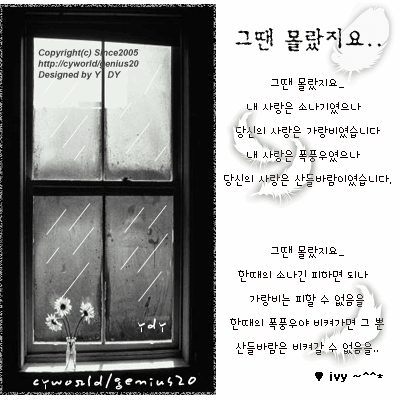 Copyright(c) Since2005
http://cyworld/genius20
Designed by Y DY
ydy
cyworld/genius20
그땐 몰랐지요..
그땐 몰랐지요_
내 사랑은 소나기였으나
당신의 사랑은 가랑비였습니다
내 사랑은 폭풍우였으나
당신의 사랑은 산들바람이였습니다.
그땐 몰랐지요_
한때의 소나긴 피하면 되나
가랑비는 피할 수 없음을
한때의 폭풍우야 비켜가면 그 뿐
산들바람은 비켜갈 수 없음을..
♥ ivy ~^^*